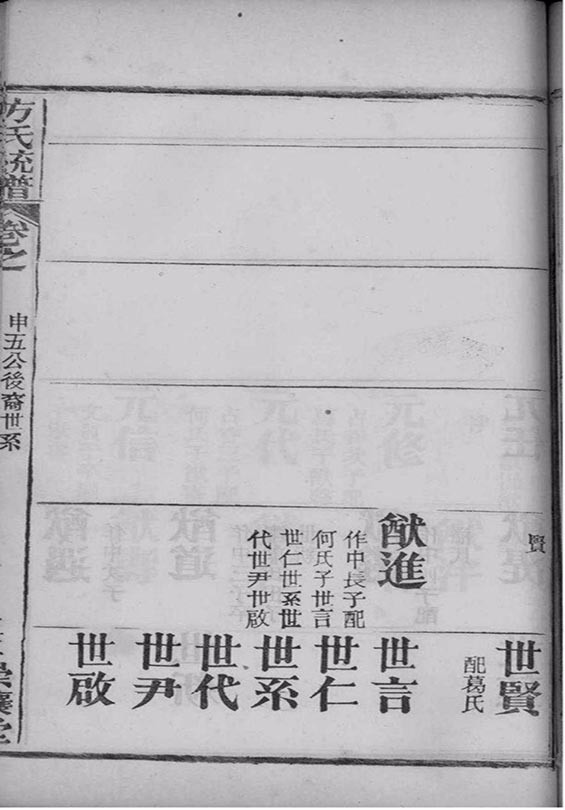 賢
猷進
作中長子配
何氏子世言
世仁世系世
代世尹世啟
世賢
配葛氏
世言
世仁
世系
世代
世尹
世啟
方氏統譜
卷之
申五公後裔世系